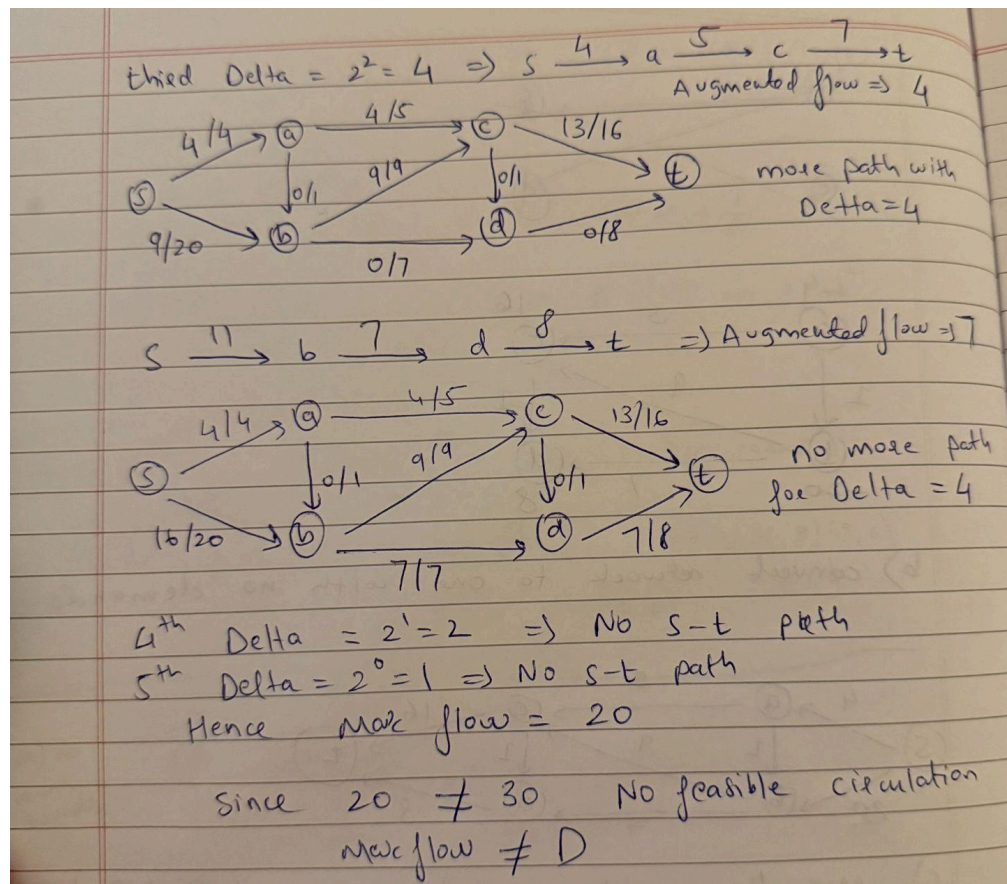 third Delta = 2² = 4 => s —4→ a —5→ c —7→ t
Augmented flow => 4
4/4 a 4/5 c 13/16
s 0/1 9/9 0/1 t more path with
Delta=4
9/20 b 0/7 d 0/8
s —11→ b —7→ d —8→ t => Augmented flow => 7
4/4 a 4/5 c 13/16
s 0/1 9/9 0/1 t no more path
for Delta = 4
16/20 b 7/7 d 7/8
4th Delta = 2¹ = 2 => No s-t path
5th Delta = 2⁰ = 1 => No s-t path
Hence Max flow = 20
Since 20 ≠ 30 No feasible circulation
Max flow ≠ D